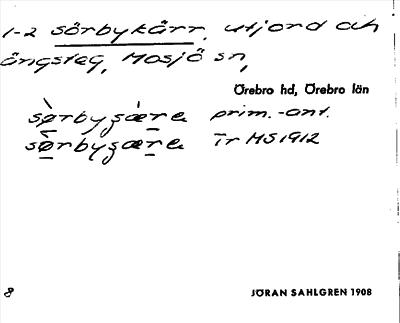 1-2 sörbykärr, utjord och
ängsteg, Mosjö sn,
Örebro hd, Örebro län
sørbyʒære prim.-ant.
sørbyʒære Tr MS 1912
8
JÖRAN SAHLGREN 1908